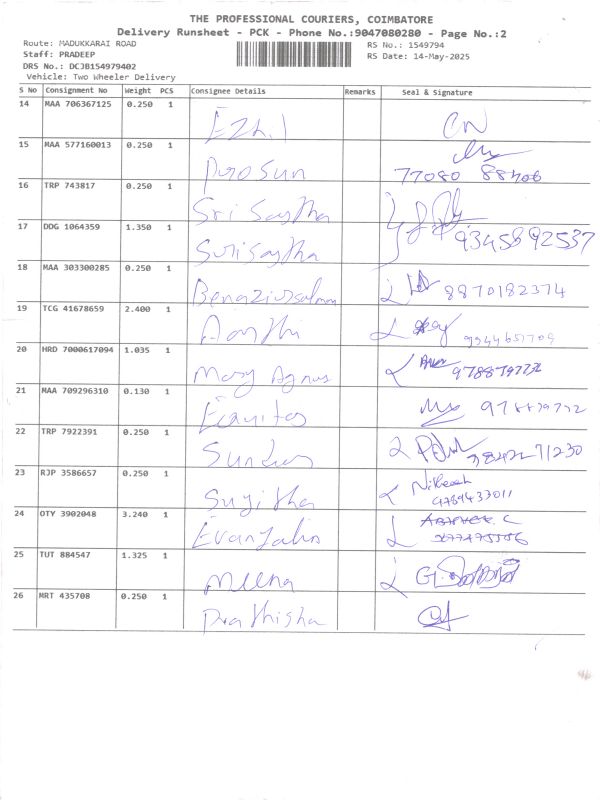 THE PROFESSIONAL COURIERS, COIMBATORE
Delivery Runsheet - PCK - Phone No.:9047080280 - Page No.:2
Route: MADUKKARAI ROAD RS No.: 1549794
Staff: PRADEEP RS Date: 14-May-2025
DRS No.: DCJB154979402
Vehicle: Two Wheeler Delivery
S No Consignment No Weight PCS Consignee Details Remarks Seal & Signature
14 MAA 706367125 0.250 1 Ezhil CN
15 MAA 577160013 0.250 1 Puro Sun 77080 88706
16 TRP 743817 0.250 1 Sri Saytha
17 DDG 1064359 1.350 1 Sri Saytha 9345892537
18 MAA 303300285 0.250 1 8870182374
19 TCG 41678659 2.400 1 Aarthi
20 HRD 7000617094 1.035 1 Mary Agnus
21 MAA 709296310 0.130 1
22 TRP 7922391 0.250 1
23 RJP 3586657 0.250 1 Sujitha 9789433011
24 OTY 3902048 3.240 1 Evanjalin
25 TUT 884547 1.325 1 Meena
26 MRT 435708 0.250 1 Prathisha